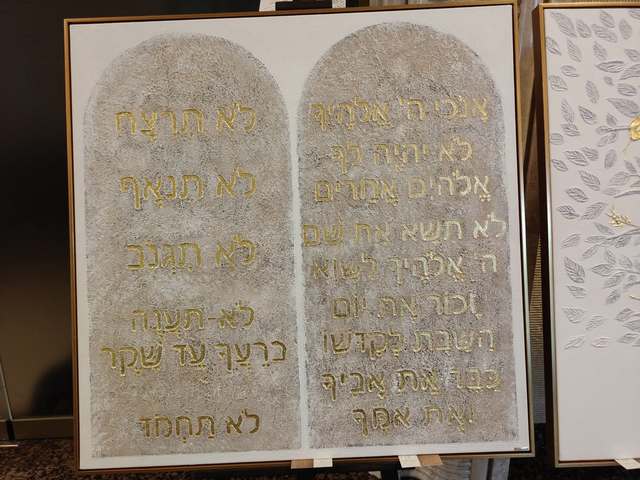 אָנֹכִי ה' אֱלֹהֶיךָ
לֹא יִהְיֶה לְךָ
אֱלֹהִים אֲחֵרִים
לֹא תִשָּׂא אֶת שֵׁם
ה' אֱלֹהֶיךָ לַשָּׁוְא
זָכוֹר אֶת יוֹם
הַשַּׁבָּת לְקַדְּשׁוֹ
כַּבֵּד אֶת אָבִיךָ
וְאֶת אִמֶּךָ
לֹא תִרְצָח
לֹא תִנְאָף
לֹא תִגְנֹב
לֹא-תַעֲנֶה
בְרֵעֲךָ עֵד שָׁקֶר
לֹא תַחְמֹד